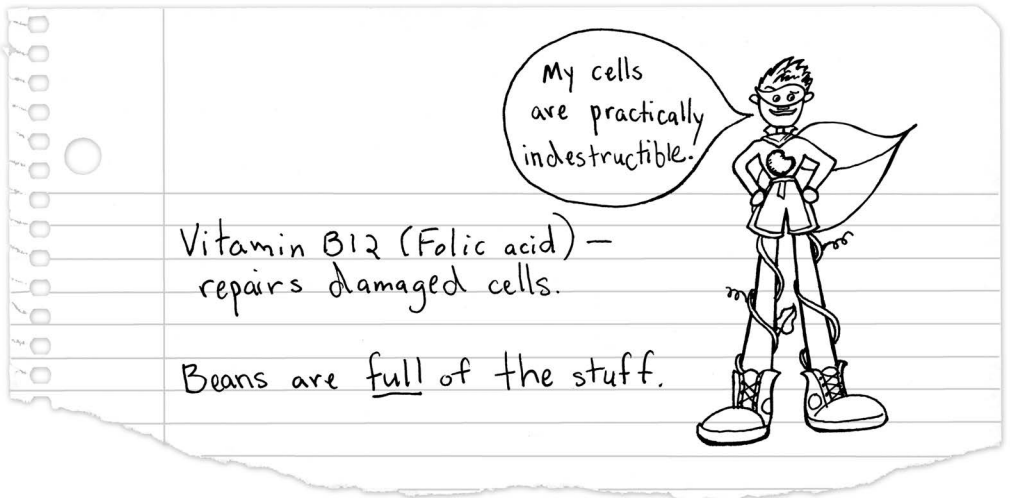 My cells
are practically
indestructible.
Vitamin B12 (Folic acid) –
repairs damaged cells.
Beans are full of the stuff.